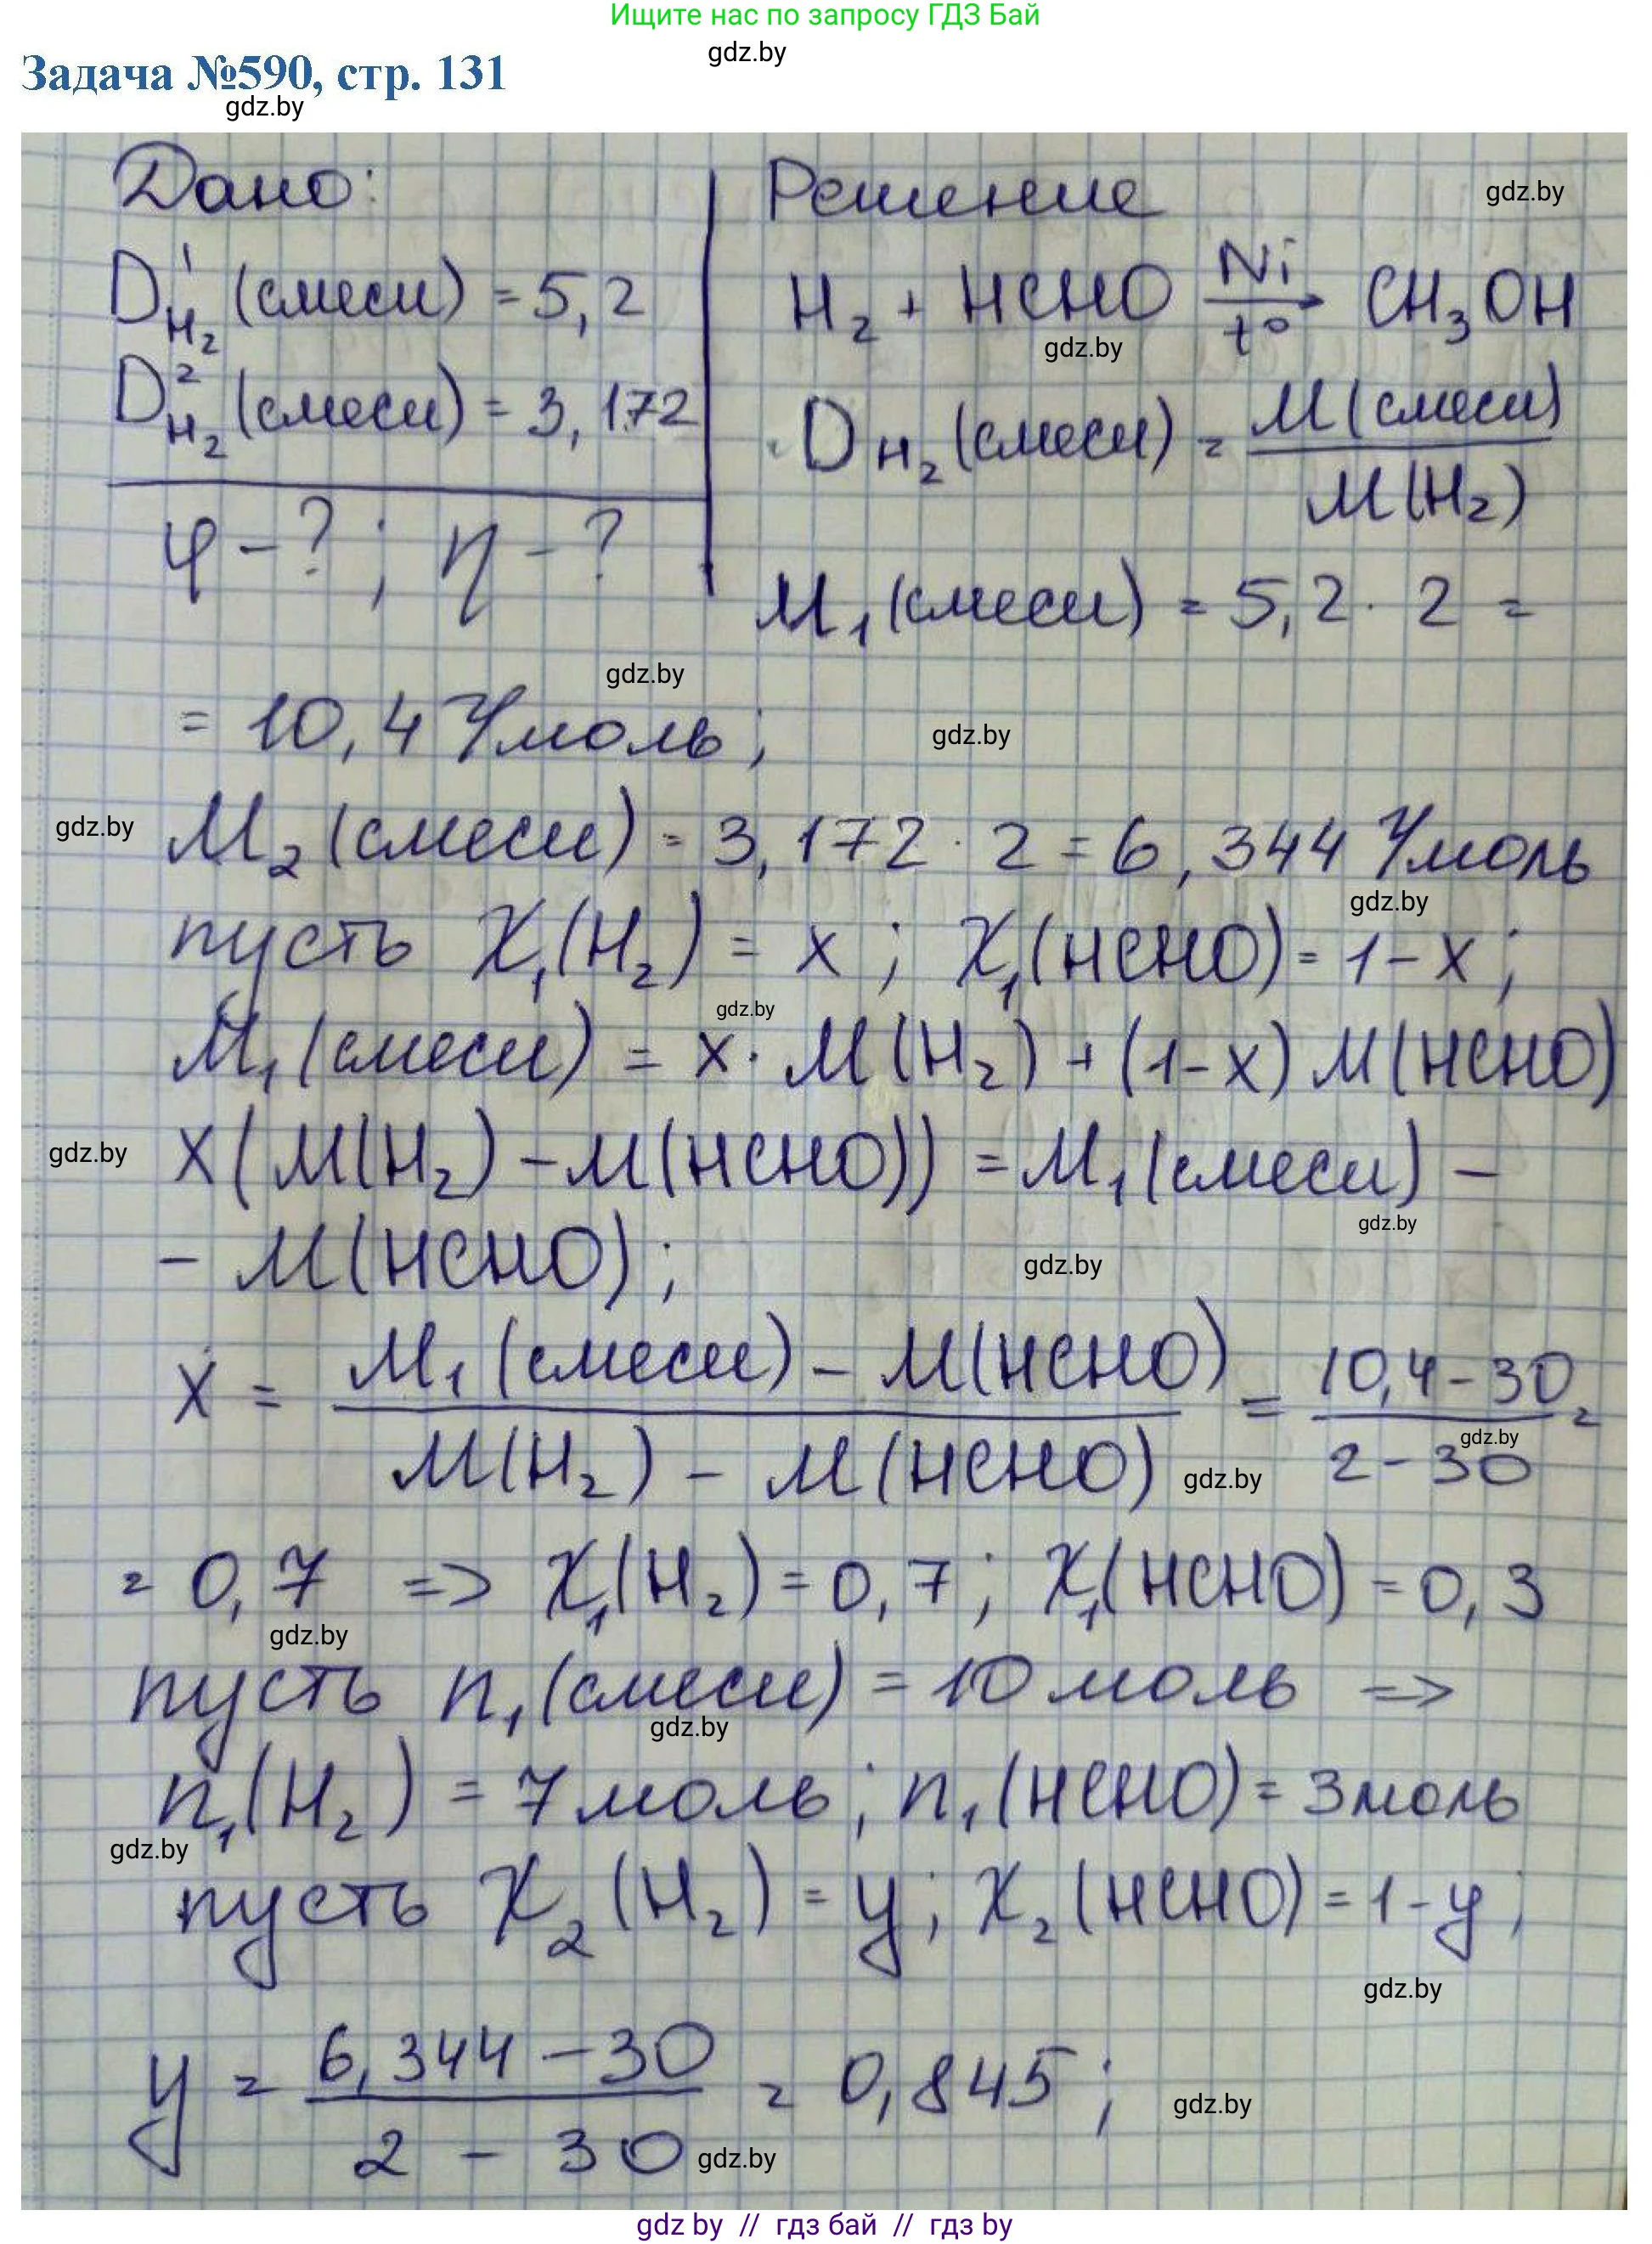 Ищите нас по запросу ГДЗ Бай
gdz.by
Задача №590, стр. 131
gdz.by
Дано:
Решение
gdz.by
D¹H₂ (смеси) = 5,2
H₂ + HCHO Ni t° → CH₃OH
gdz.by
D²H₂ (смеси) = 3,172
DH₂ (смеси) = M(смеси) / M(H₂)
φ - ? ; η - ?
M₁ (смеси) = 5,2 · 2 =
gdz.by
= 10,4 г/моль ;
gdz.by
gdz.by
M₂ (смеси) = 3,172 · 2 = 6,344 г/моль
gdz.by
пусть χ₁(H₂) = x ; χ₁(HCHO) = 1 - x ;
gdz.by
M₁ (смеси) = x · M(H₂) + (1-x) M(HCHO)
gdz.by
x (M(H₂) - M(HCHO)) = M₁ (смеси) -
gdz.by
- M(HCHO) ;
gdz.by
x = M₁ (смеси) - M(HCHO) / M(H₂) - M(HCHO) = 10,4 - 30 / 2 - 30 =
gdz.by
gdz.by
= 0,7 => χ₁(H₂) = 0,7 ; χ₁(HCHO) = 0,3
gdz.by
пусть n₁ (смеси) = 10 моль =>
gdz.by
n₁(H₂) = 7 моль ; n₁(HCHO) = 3 моль
gdz.by
пусть χ₂(H₂) = y ; χ₂(HCHO) = 1 - y ;
gdz.by
y = 6,344 - 30 / 2 - 30 = 0,845 ;
gdz.by
gdz.by
gdz by // гдз бай // гдз by